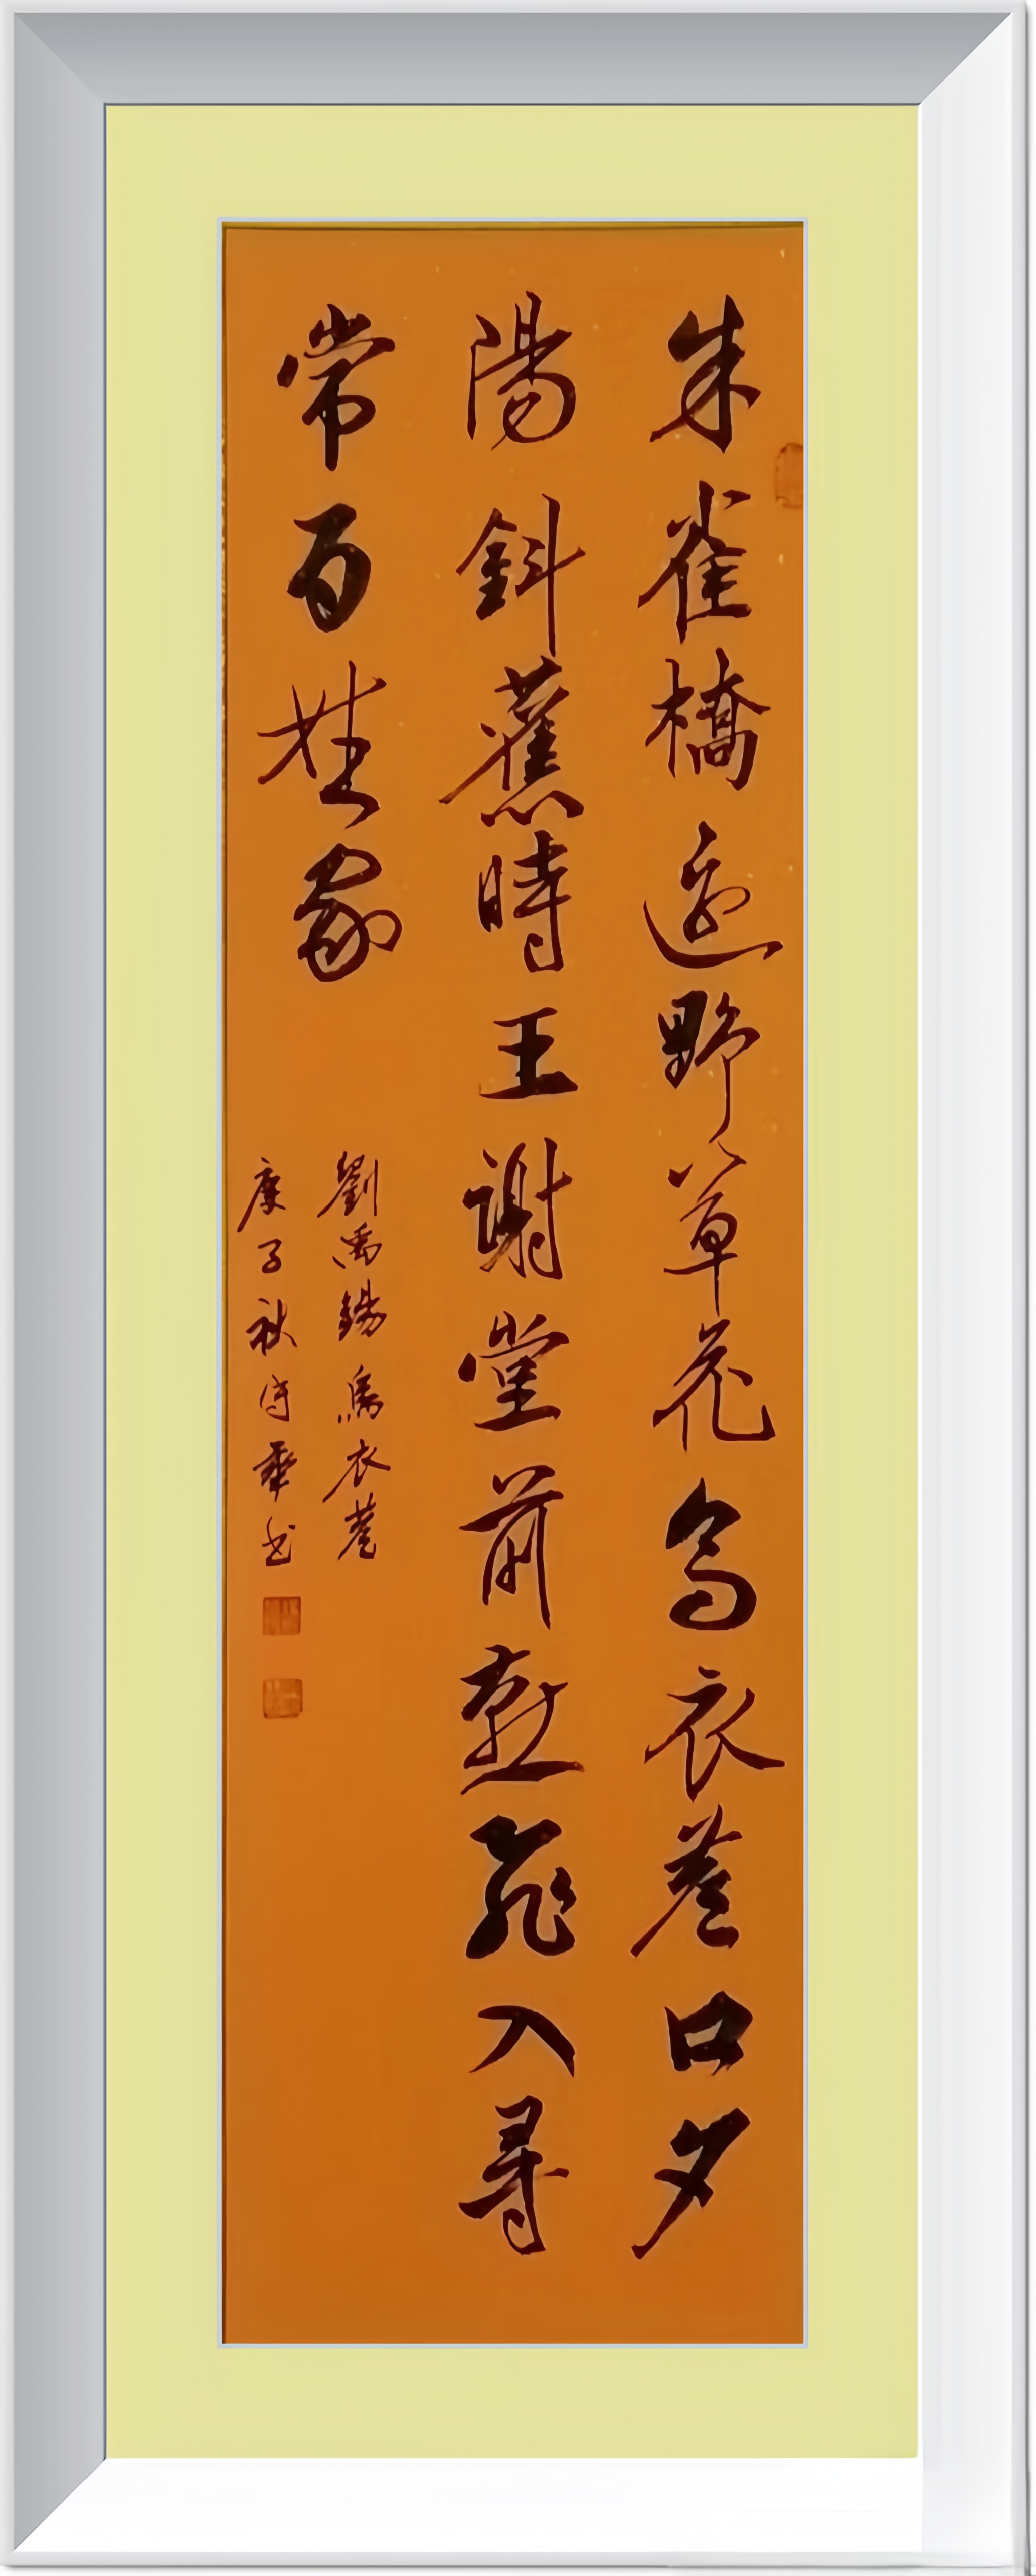 朱雀橋邊野草花烏衣巷口夕
陽斜舊時王謝堂前燕飛入尋
常百姓家
劉禹錫烏衣巷
庚子秋華书